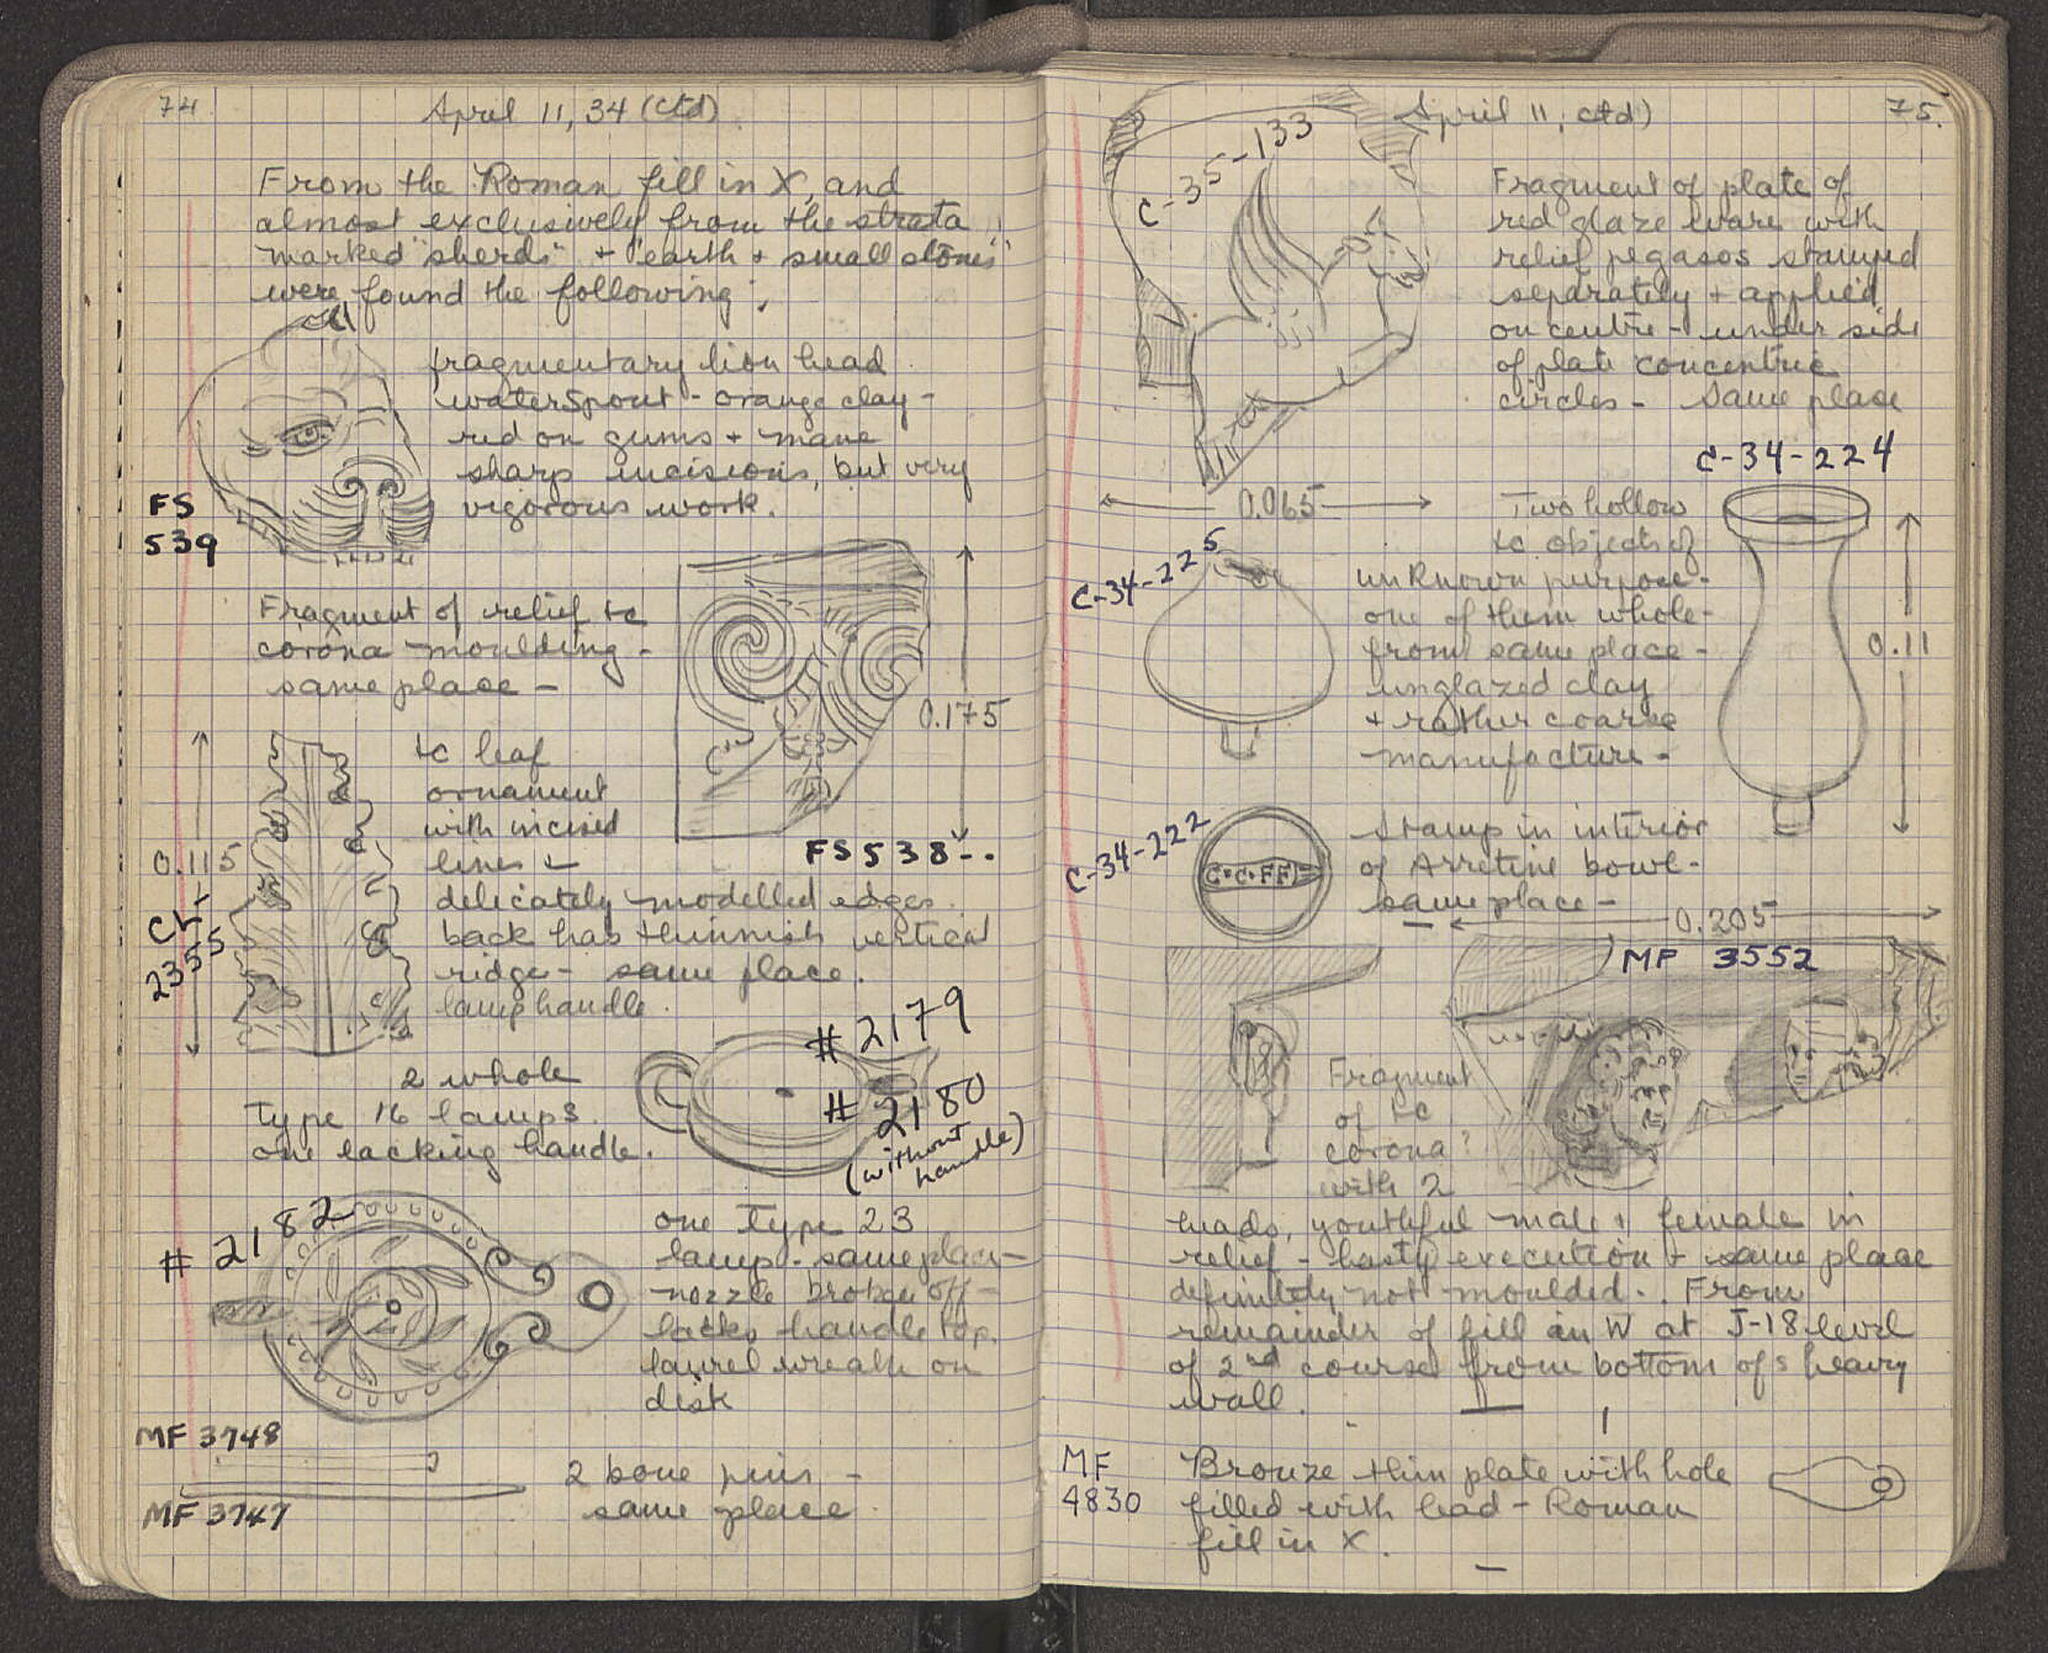 74
April 11, 34 (ctd)
From the Roman fill in X, and
almost exclusively from the strata
marked "sherds" + "earth + small stones"
were found the following:
fragmentary lion head
waterspout - orange clay -
red on gums + mane
sharp incisions, but very
vigorous work.
FS
539
Fragment of relief tc
corona moulding -
same place -
0.175
FS 538
tc leaf
ornament
with incised
lines +
delicately modelled edges.
back has thinnish vertical
ridge - same place.
lamp handle.
0.115
2355
2 whole
Type 16 lamps.
one lacking handle.
# 2179
# 2180
(without
handle)
# 2182
one Type 23
lamp - same place -
nozzle broken off -
lacks handle top.
laurel wreath on
disk
MF 3748
MF 3747
2 bone pins -
same place.
April 11, ctd)
75.
C-35-133
Fragment of plate of
red glaze ware with
relief pegasos stamped
separately + applied
on centre - under side
of plate concentric
circles - Same place
0.065
C-34-224
C-34-225
Two hollow
tc objects of
unknown purpose -
one of them whole -
from same place -
unglazed clay
+ rather coarse
manufacture -
0.11
C-34-222
C·C·FF
Stamp in interior
of Arretine bowl -
same place -
0.205
MF 3552
Fragment
of tc
corona?
with 2
heads, youthful male + female in
relief - hasty execution + same place
definitely not moulded. From
remainder of fill in W at J-18 level
of 2nd course from bottom of s heavy
wall.
MF
4830
Bronze thin plate with hole
filled with lead - Roman
fill in X.